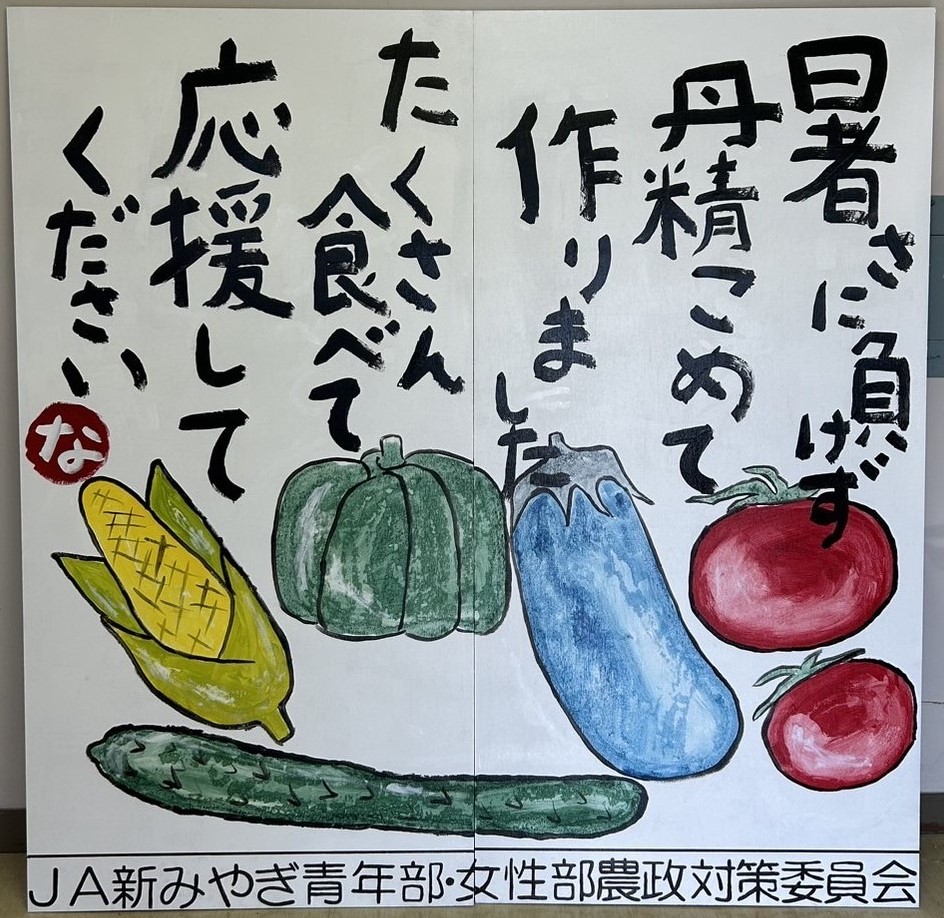 暑さに負けず
丹精こめて
作りました
たくさん
食べて
応援して
ください
な
JA新みやぎ青年部・女性部農政対策委員会